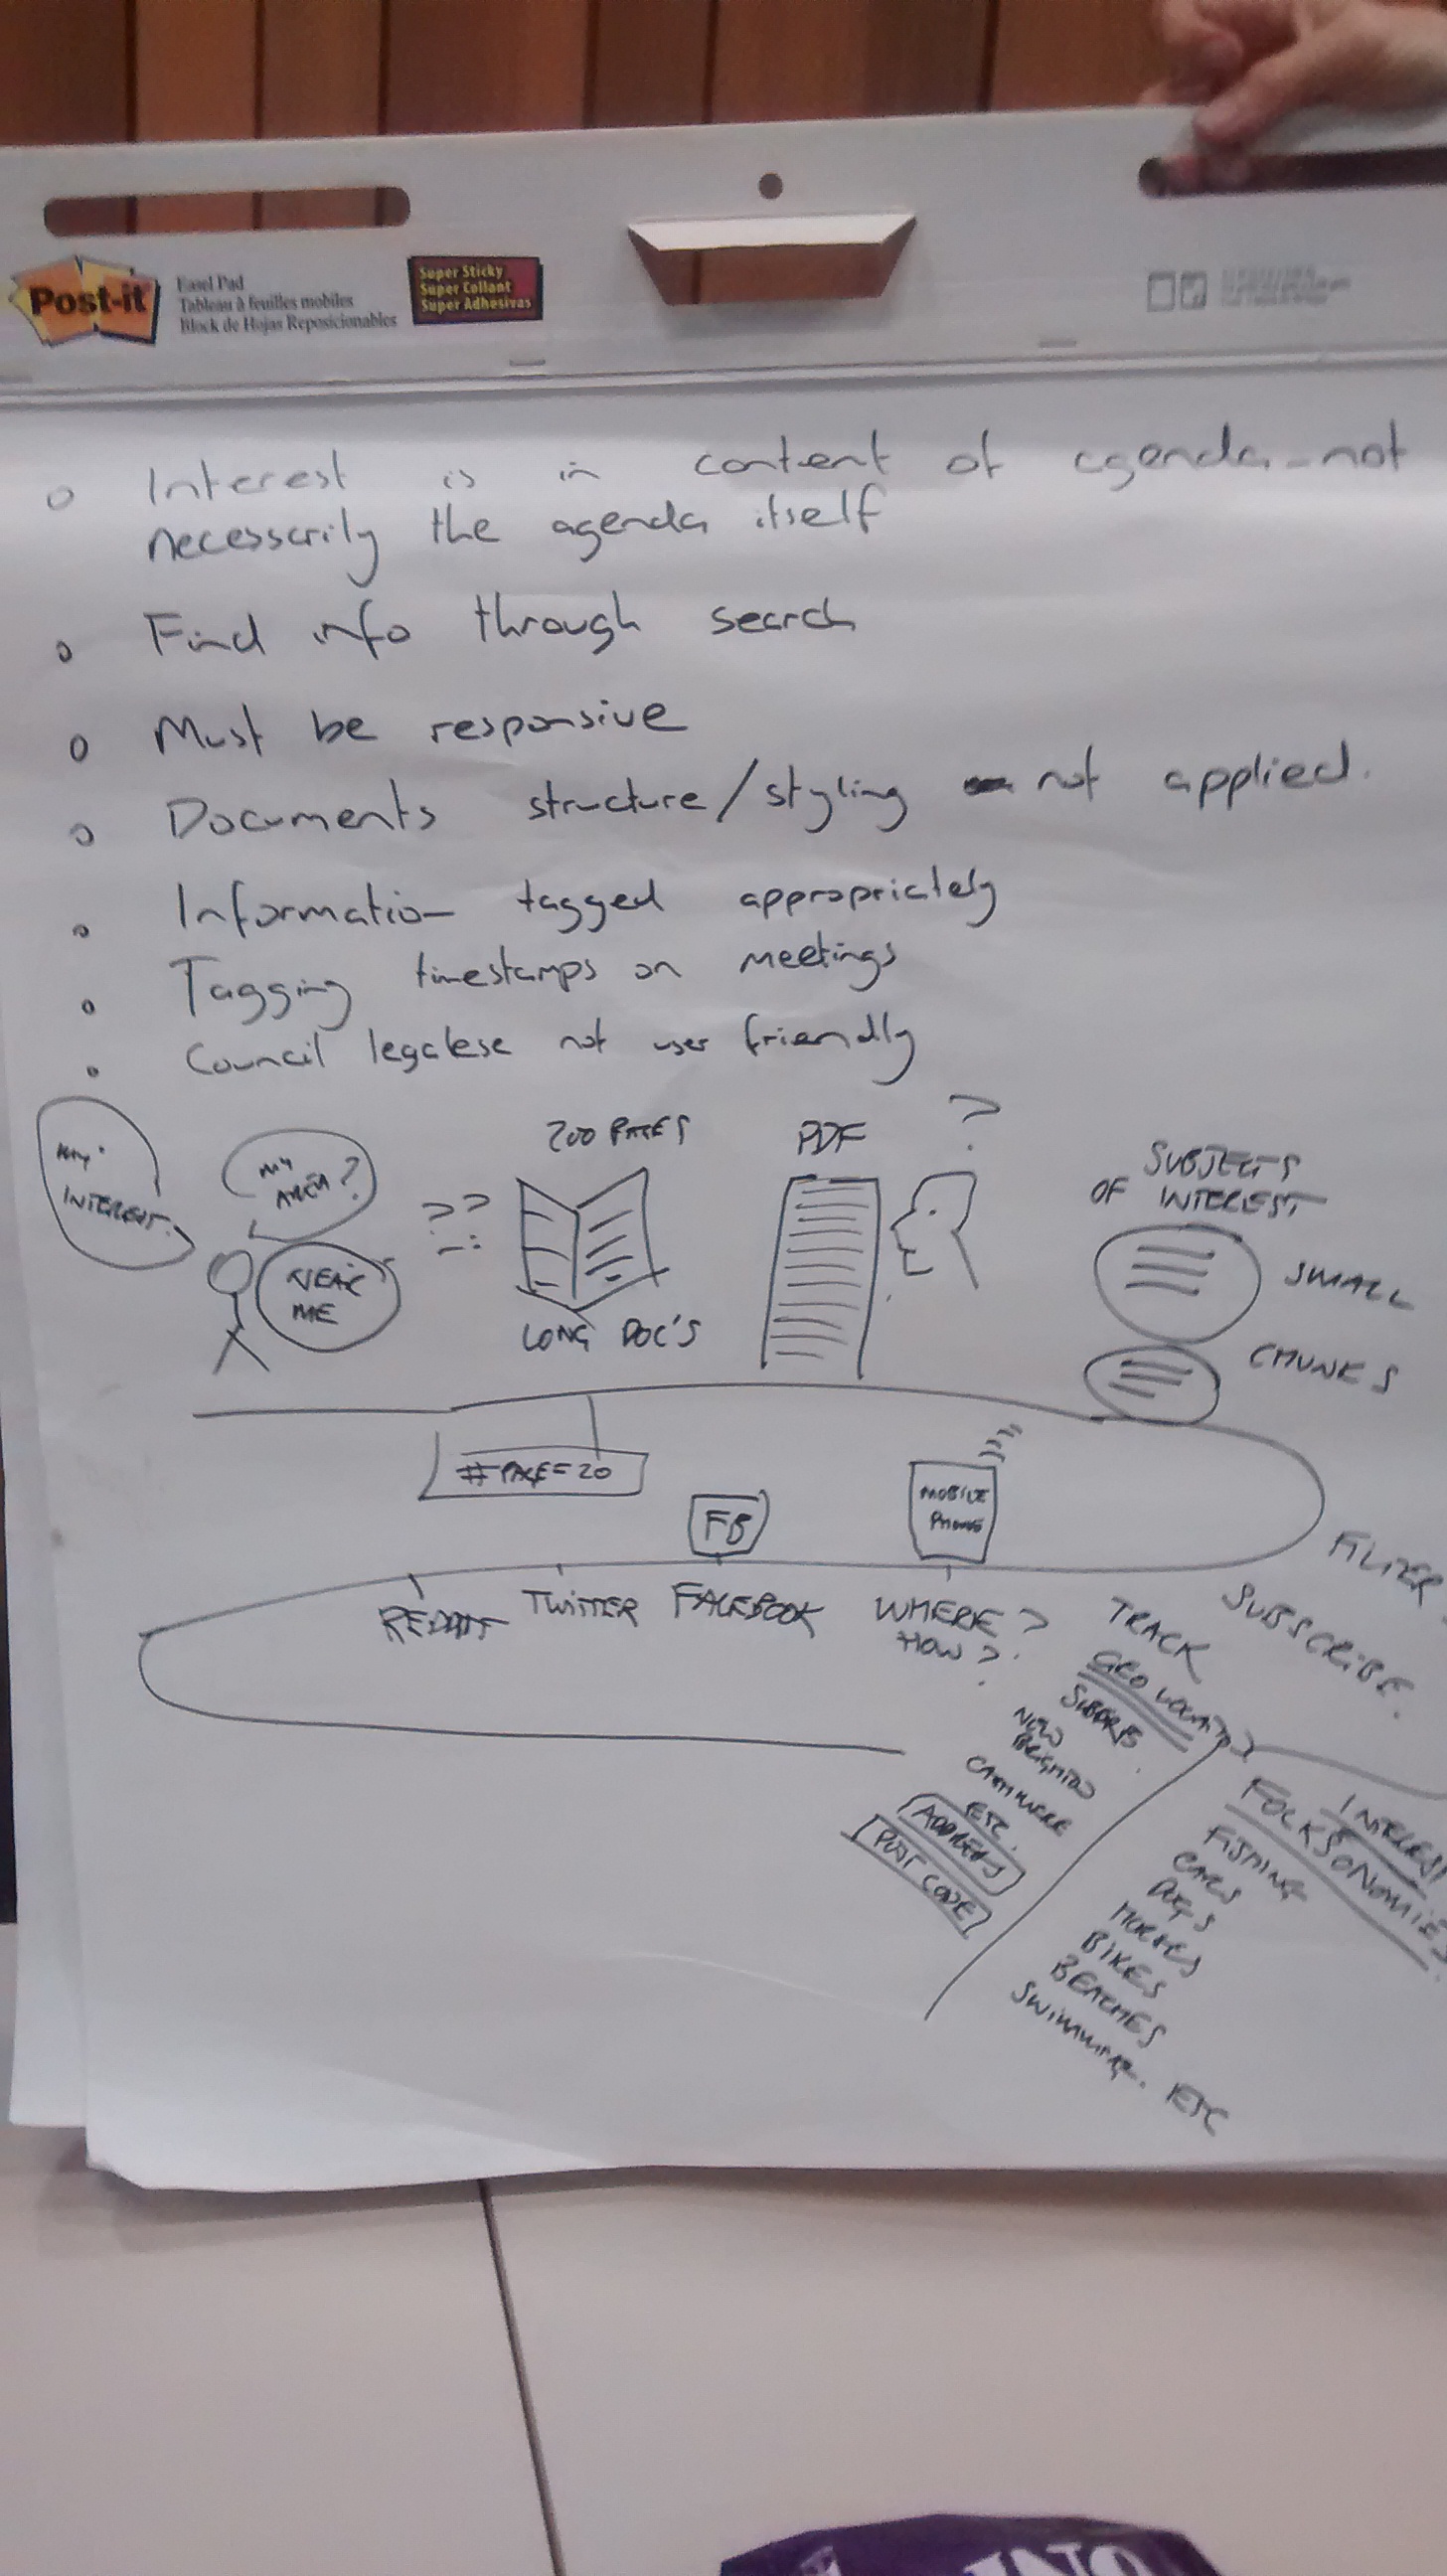 Post-it
Easel Pad
Tableau à feuilles mobiles
Block de Hojas Reposicionables
Super Sticky
Super Collant
Super Adhesivas
Interest is in content of agenda - not
necessarily the agenda itself
Find info through search
Must be responsive
Documents structure/styling not applied.
Information tagged appropriately
Tagging timestamps on meetings
Council legalese not user friendly
MY
INTEREST.
MY
AREA?
NEAR
ME
??
200 PAGES
LONG DOC'S
PDF
?
SUBJECTS
OF INTEREST
SMALL
CHUNKS
#PAGE=20
FB
MOBILE
PHONE
REDDIT
TWITTER
FACEBOOK
WHERE?
HOW?
TRACK
SUBSCRIBE.
FILTER
GEO
SUBURBS
NEW
BRIGHTON
ETC.
ADDRESS
POST CODE
INTEREST
FOLKSONOMIES
FISHING
CARS
DOGS
HORSES
BIKES
BEACHES
SWIMMING. ETC